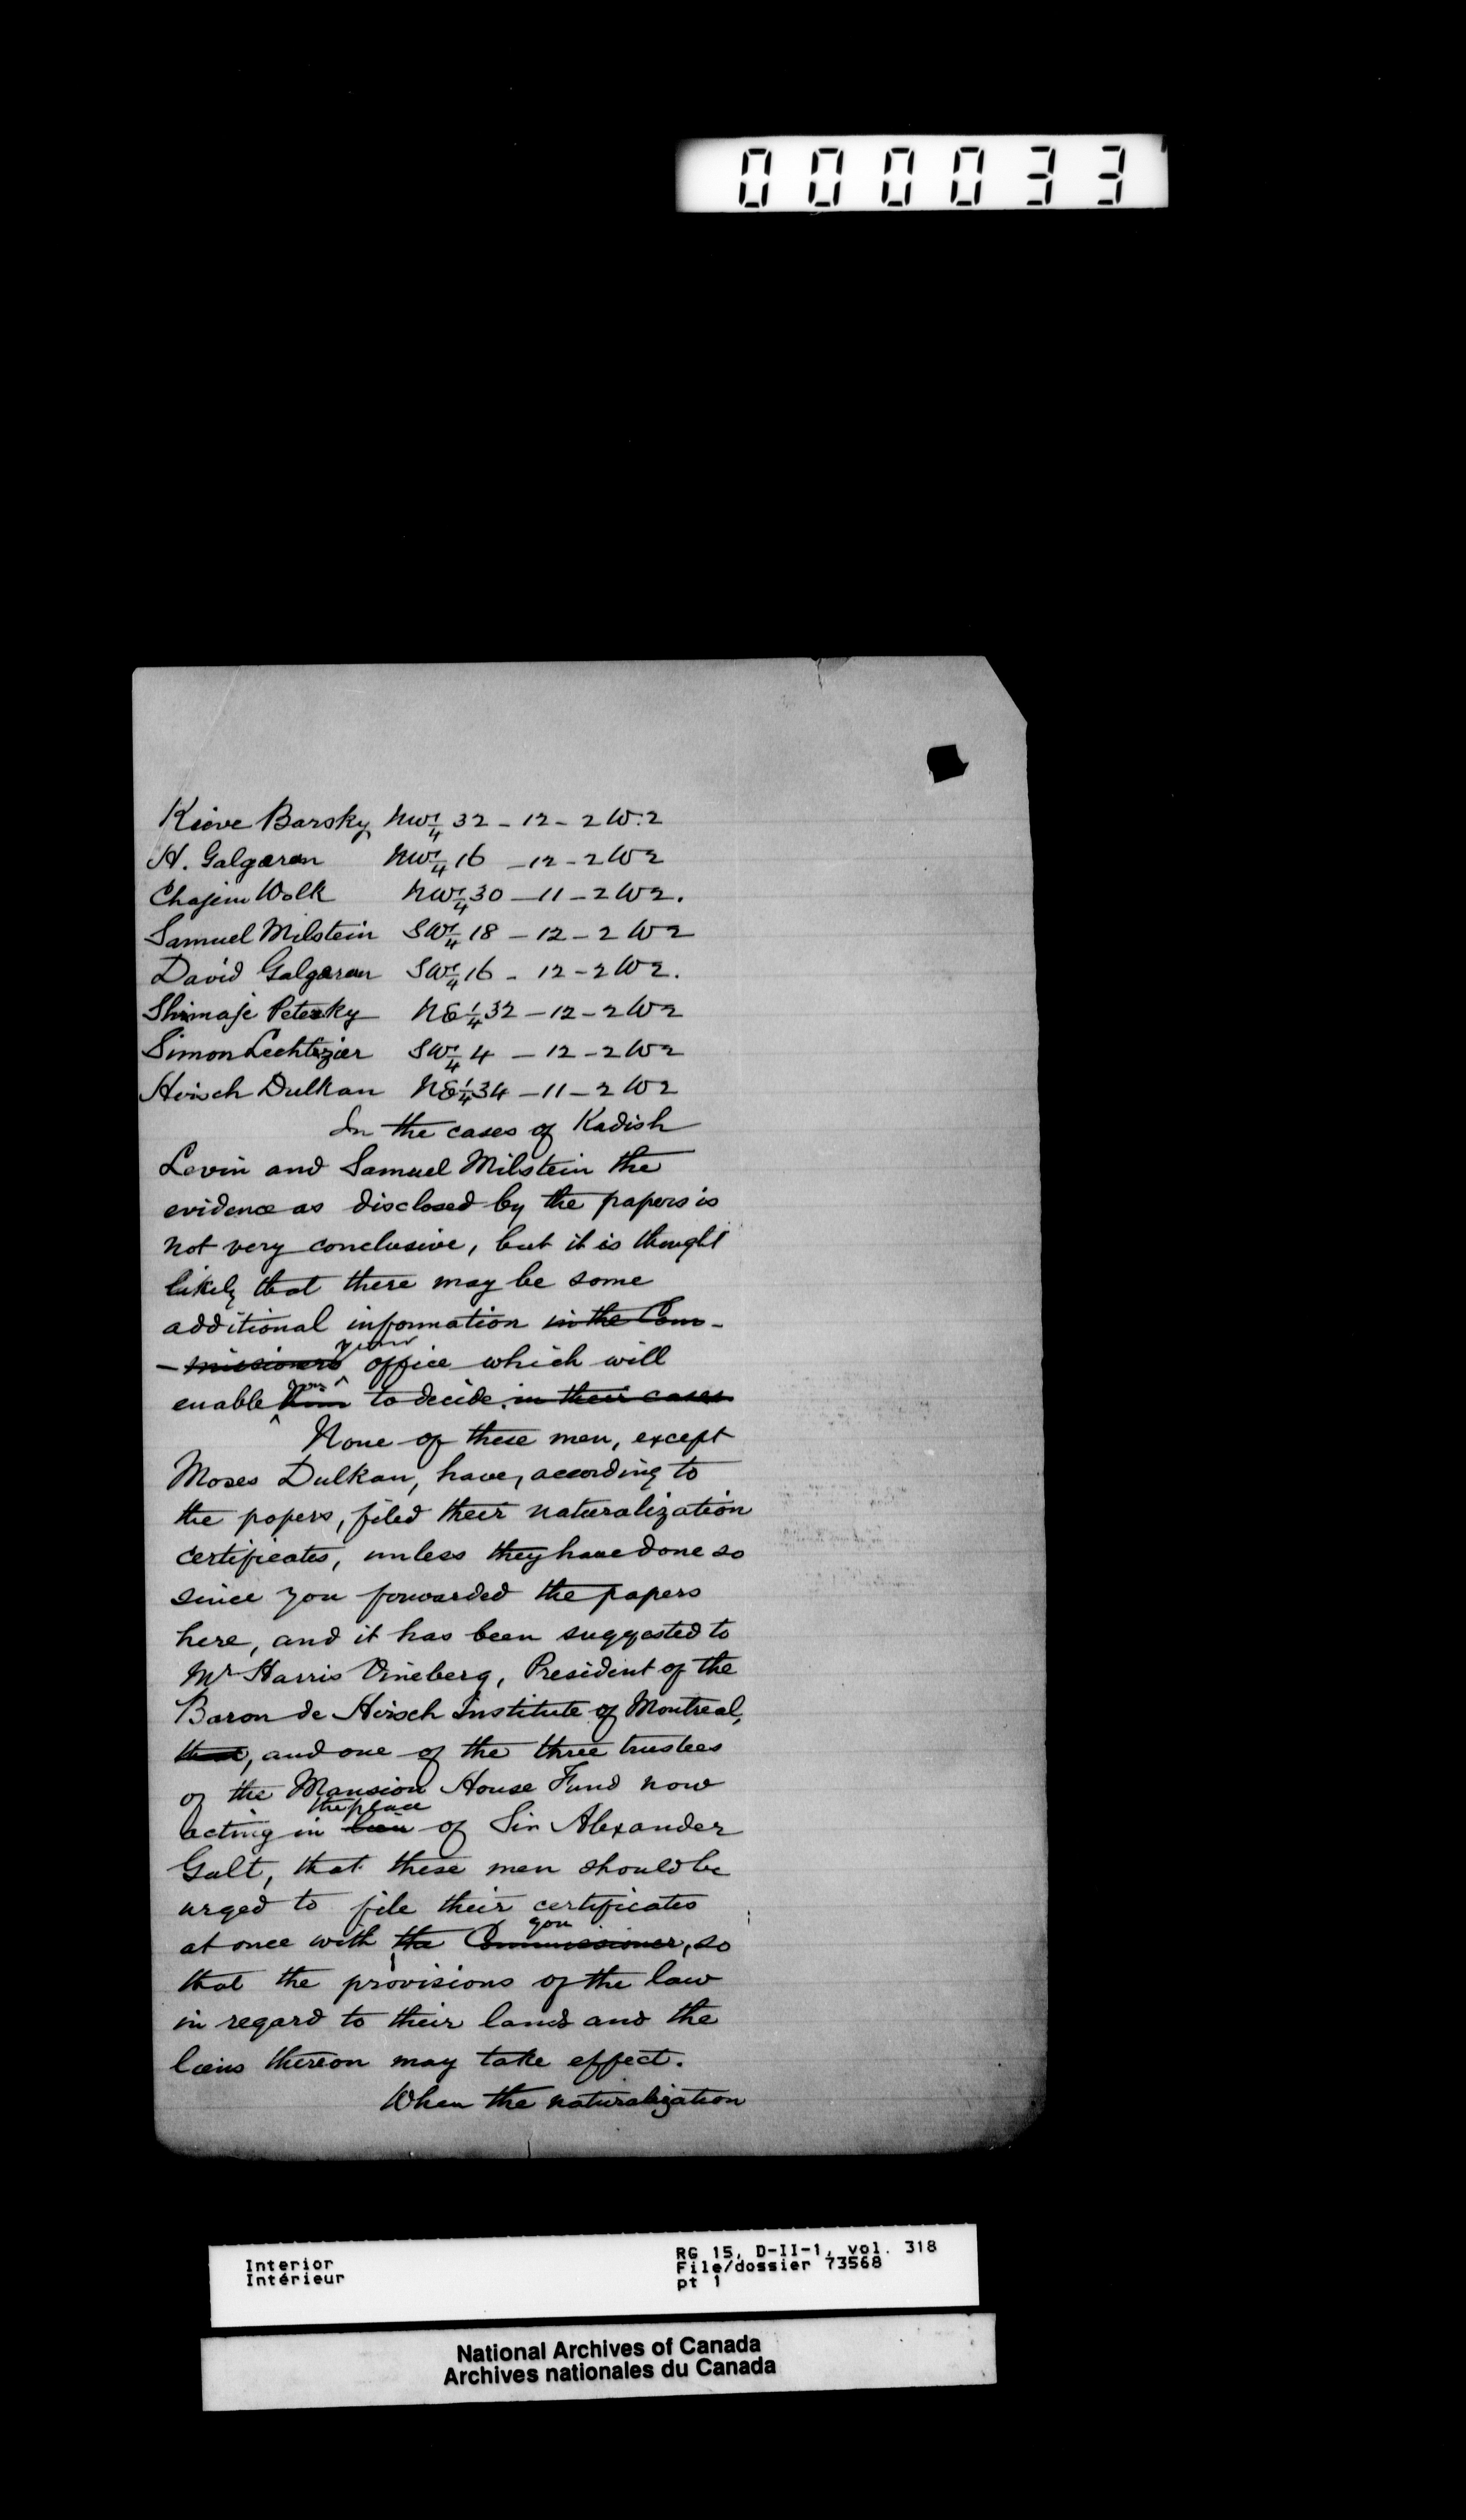 000033
Kieve Barsky NW 1/4 32 - 12 - 2 W. 2
H. Galgaran NW 1/4 16 - 12 - 2 W 2
Chajem Wolk NW 1/4 30 - 11 - 2 W 2.
Samuel Milstein SW 1/4 18 - 12 - 2 W 2
David Galgaran SW 1/4 16 - 12 - 2 W 2.
Shimaje Petersky NE 1/4 32 - 12 - 2 W 2
Simon Lechtzier SW 1/4 4 - 12 - 2 W 2
Hirsch Dulkan NE 1/4 34 - 11 - 2 W 2
In the cases of Kadish
Levin and Samuel Milstein the
evidence as disclosed by the papers is
not very conclusive, but it is thought
likely that there may be some
additional information in the Com-
- missioners your office which will
enable him you to decide. in their cases
None of these men, except
Moses Dulkan, have, according to
the papers, filed their naturalization
certificates, unless they have done so
since you forwarded the papers
here, and it has been suggested to
Mr Harris Vineberg, President of the
Baron de Hirsch Institute of Montreal,
that, and one of the three trustees
of the Mansion House Fund now
acting in lieu the place of Sir Alexander
Galt, that these men should be
urged to file their certificates
at once with the Commissioner you, so
that the provisions of the law
in regard to their land and the
liens thereon may take effect.
When the naturalization
Interior
Intérieur
RG 15, D-II-1, vol. 318
File/dossier 73568
pt 1
National Archives of Canada
Archives nationales du Canada